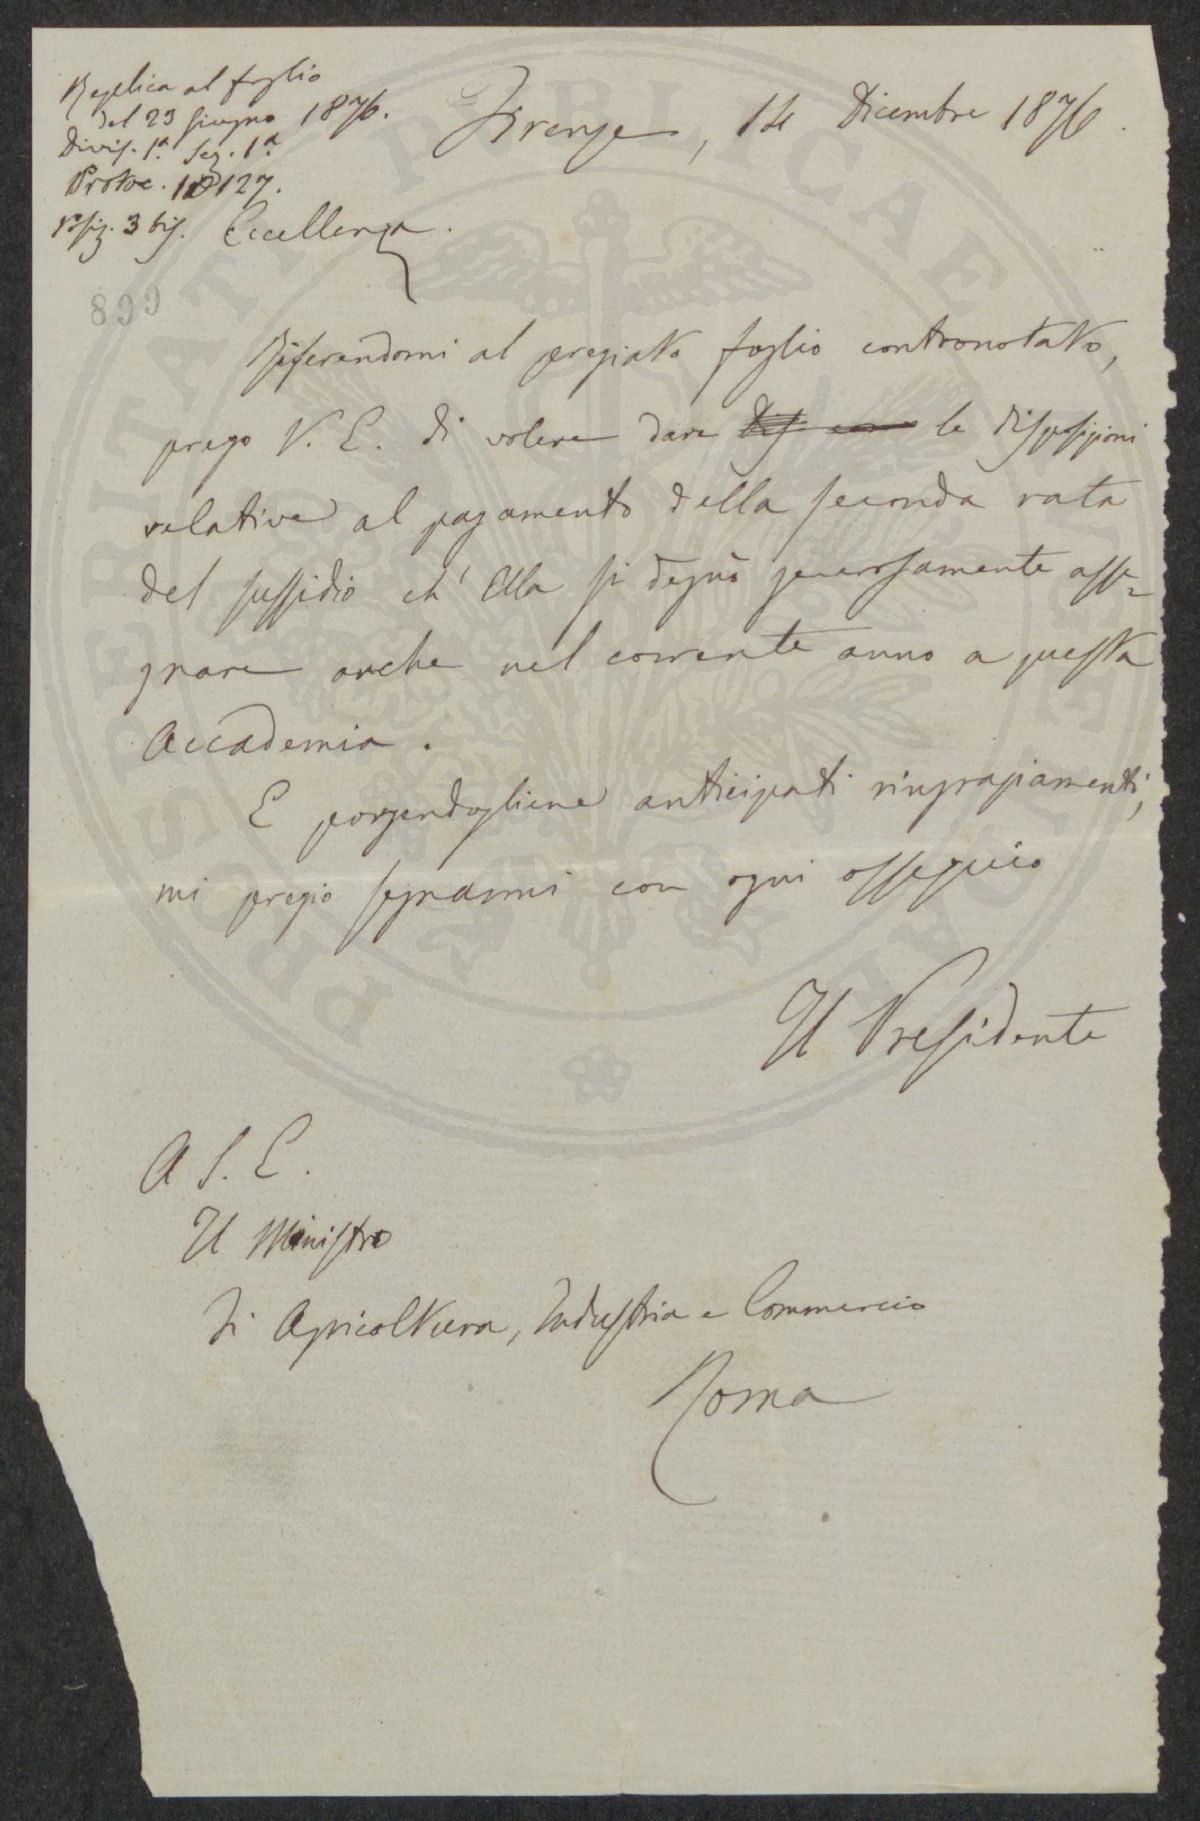 Replica al foglio
del 23 giugno 1876.
Divis. 1ª Sez. 1ª
Protoc. 18127.
Posiz. 3 bis.
Firenze, 14 Dicembre 1876.
Eccellenza.
899
Riferendomi al pregiato foglio contronotato,
prego V. E. di volere dare le disposizioni
relative al pagamento della seconda rata
del sussidio ch' Ella si degnò generosamente asse=
gnare anche nel corrente anno a questa
Accademia.
E porgendogliene anticipati ringraziamenti,
mi pregio segnarmi con ogni ossequio
Il Presidente
A S. E.
Il Ministro
di Agricoltura, Industria e Commercio
Roma
PROSPERITATI PUBLICAE AUGENDAE